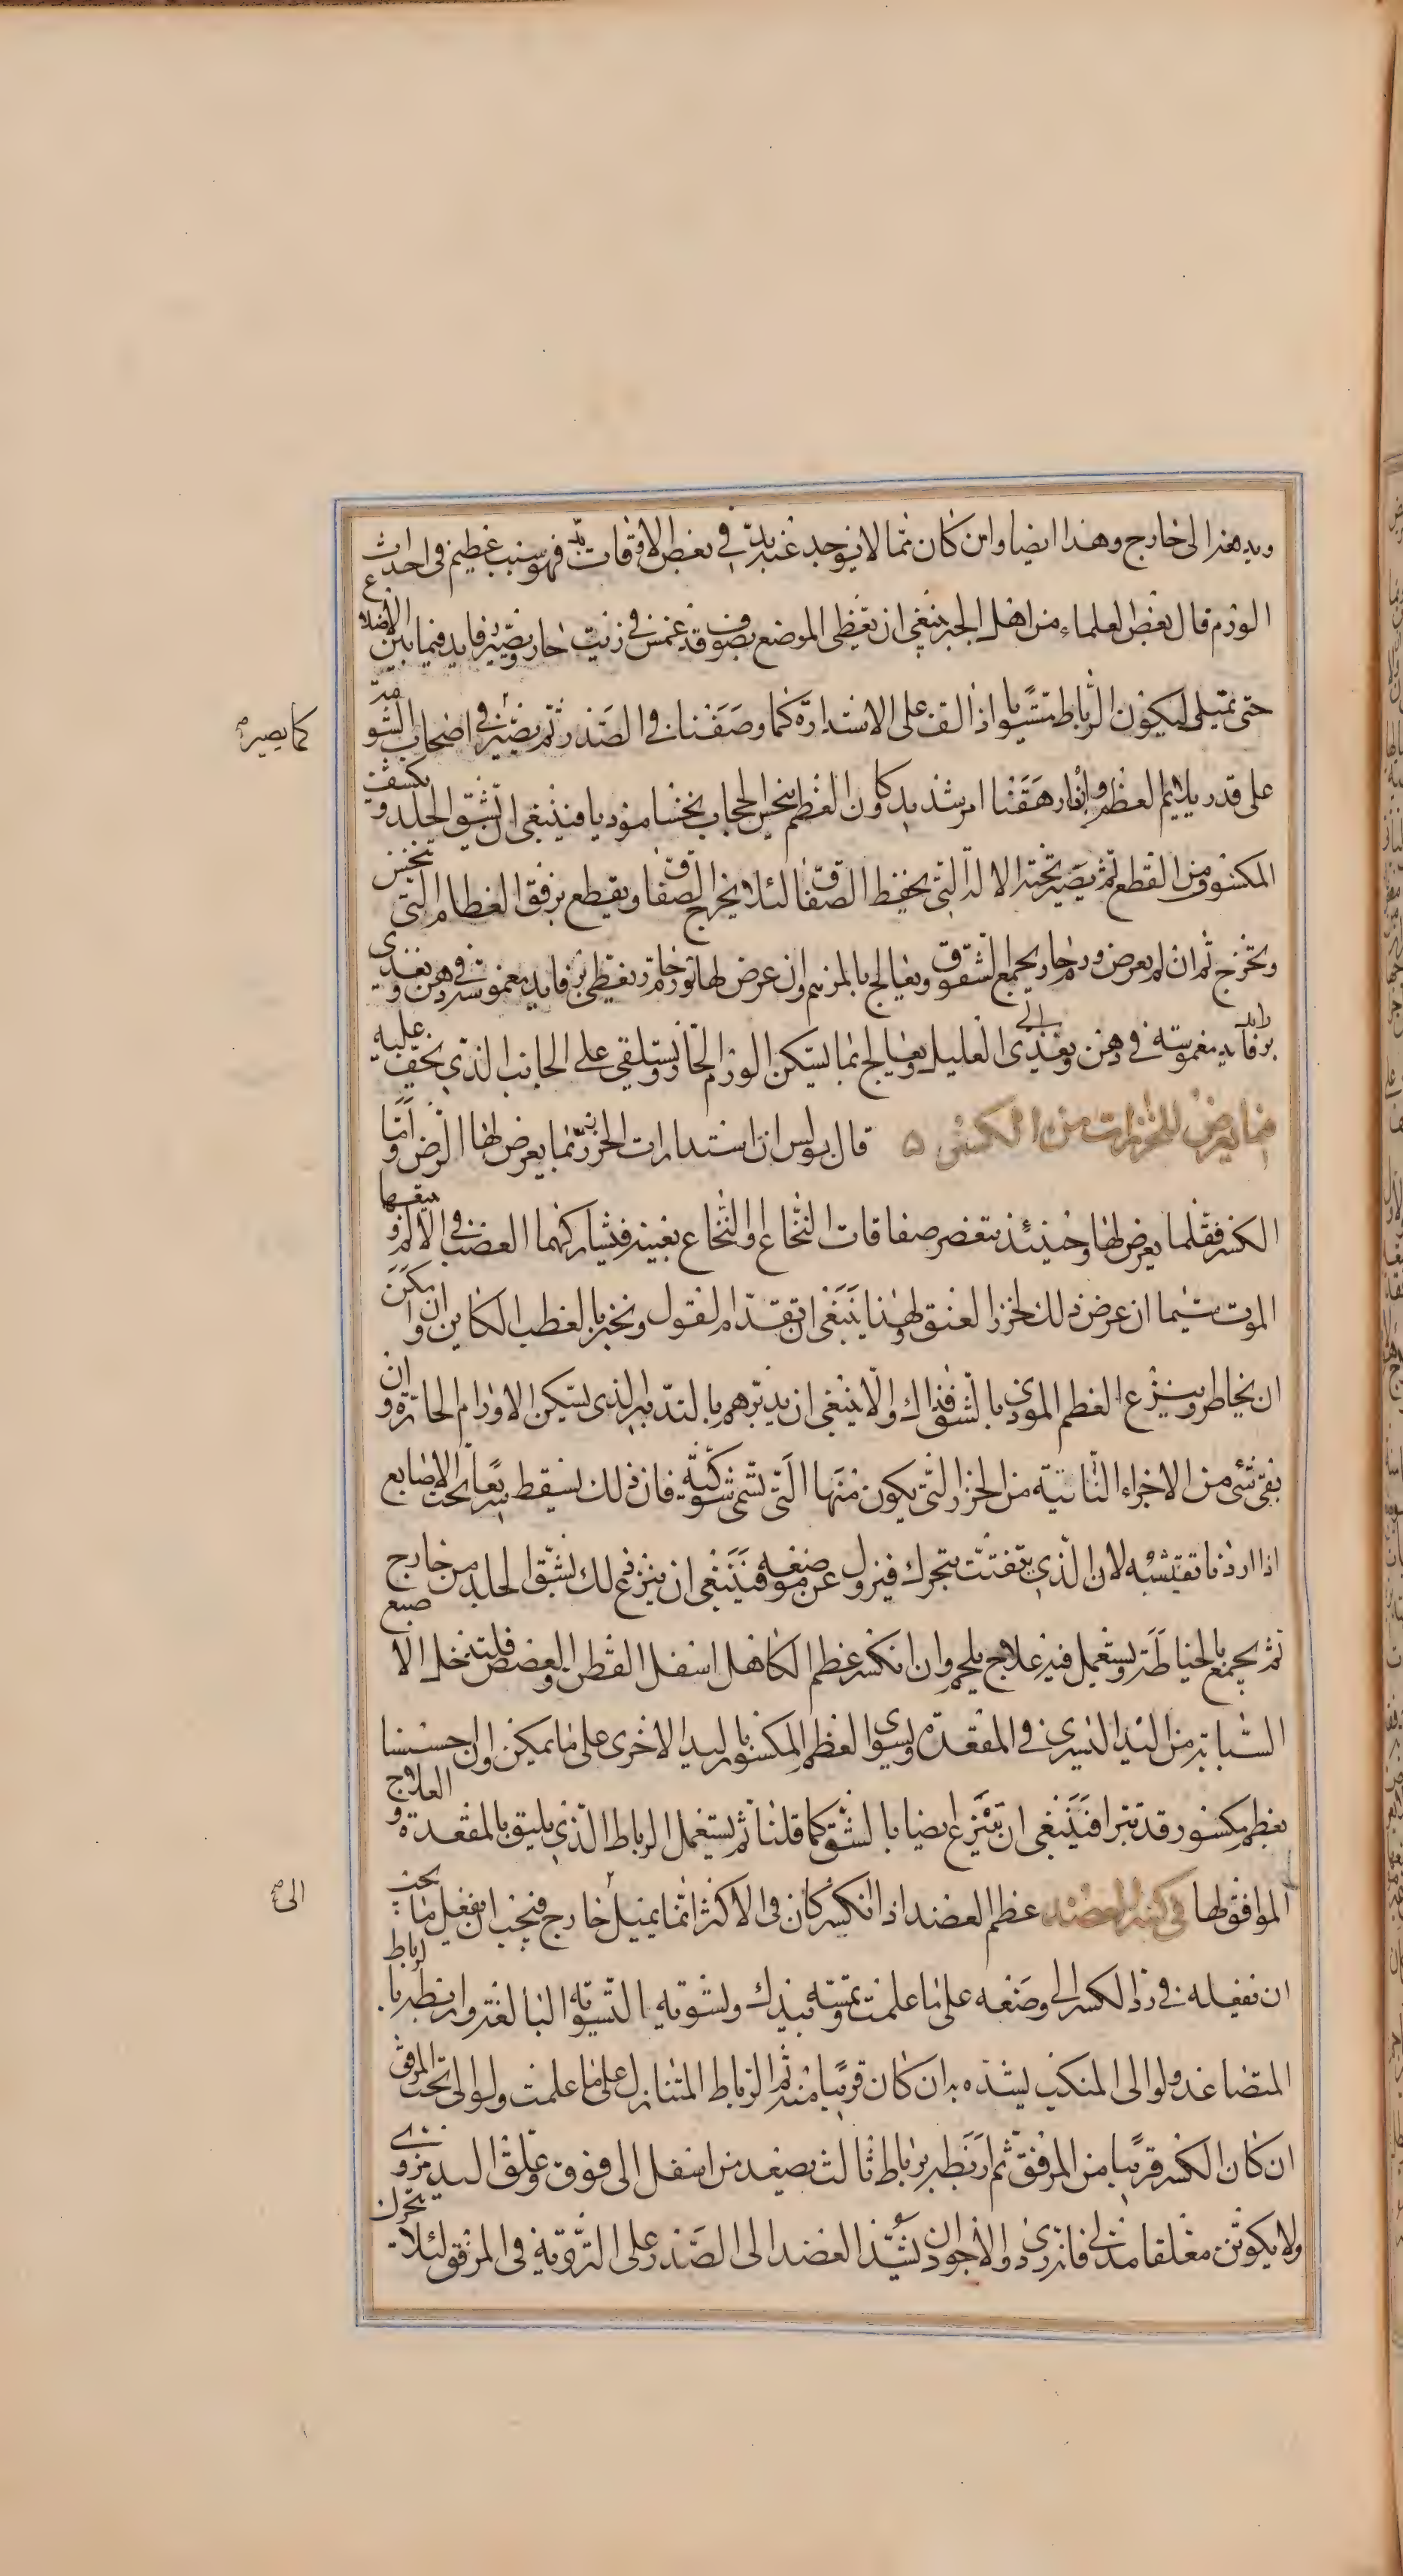 ويدهنه الى خارج وهذا ايضا وان كان مما لا يوجد عنه بد في بعض الاوقات فهو سبب عظيم فى احداث
الورم قال بعض العلماء من اهل الجبر ينبغى ان تغطى الموضع بصوف قد غمس فى زيت حار وتصير رفايد فيما بين الاضلاع
حتى تمتلى ليكون الرباط مستويا اذا لف على الاستدارة كما وصفنا فى الصدر ثم تصير فى اصحاب الشوصة
كما يصير
على قدر يلايم العظم وان ارهقنا امر شديد وكان العظم ينخس الحجاب نخسا موذيا فينبغى ان نشق الجلد ونكشف
المكسور من القطع ثم يصير تحته الالة التى تحفظ الصفاق لئلا ينخرق الصفاق ويقطع برفق العظام التى تنخس
وتخرج ثم ان لم يعرض ورم حار يجمع الشق ويعالج بالمرهم وان عرض لها ورم حار تغطى برفايد مغموسة فى دهن ويغذى
برفايد مغموسة فى دهن ويغذى العليل ويعالج بما يسكن الورم الحار ويستلقى على الجانب الذى يخف عليه
فيما يعرض للخرزات من الكسر ۵ قال بولس ان استدارات الخرز ربما يعرض لها الرض واما
الكسر فقلما يعرض لها وحينئذ تنعصر صفاقات النخاع والنخاع بعينه فيشاركهما العصب فى الالم ويتبعها
الموت سيما ان عرض ذلك لخرز العنق ولهذا ينبغى ان تقدم القول ونخبر بالعطب الكاين وان امكن
ان يخاطر وينزع العظم الموذى بالشق فذاك والا ينبغى ان يدبرهم بالتدبير الذى يسكن الاورام الحارة وان
بقى شى من الاجزاء الناتية من الخرز التى يكون منها التى تسمى شوكية فان ذلك يسقط سريعا تحت الاصابع
اذا اردنا تفتيشه لان الذى يتفتت يتحرك فيزول عن موضعه فينبغى ان ينزع ذلك بشق الجلد من خارج
ثم يجمع بالخياطة ويستعمل فيه علاج يلحم وان انكسر عظم الكاهل اسفل القطن او العصعص فلتدخل الاصبع
السبابة من اليد اليسرى فى المقعدة ويسوى العظم المكسور باليد الاخرى على ما يمكن وان حسسنا
بعظم مكسور قد تبرا فينبغى ان ينتزع ايضا بالشق كما قلنا ثم يستعمل الرباط الذى يليق بالمقعدة والعلاج
الموافق لها فى كسر العضد عظم العضد اذا انكسر كان فى الاكثر انما يميل خارج فيجب ان تفعل ما يجب
الى
ان تفعله فى رد الكسر الى وضعه على ما علمت وتمسه بيدك وتسويه التسوية البالغة وان تربطه برباط
المتصاعد ولو الى المنكب يشده به ان كان قريبا منه ثم الرباط المتنازل على ما علمت ولو الى تحت المرفق
ان كان الكسر قريبا من المرفق ثم ان تربطه برباط ثالث يصعد من اسفل الى فوق وعلق اليد مزوى
ولا يكونن معلقا مدلى فانه ردى والاجود ان يشد العضد الى الصدر على التزوية فى المرفق لئلا يتحرك